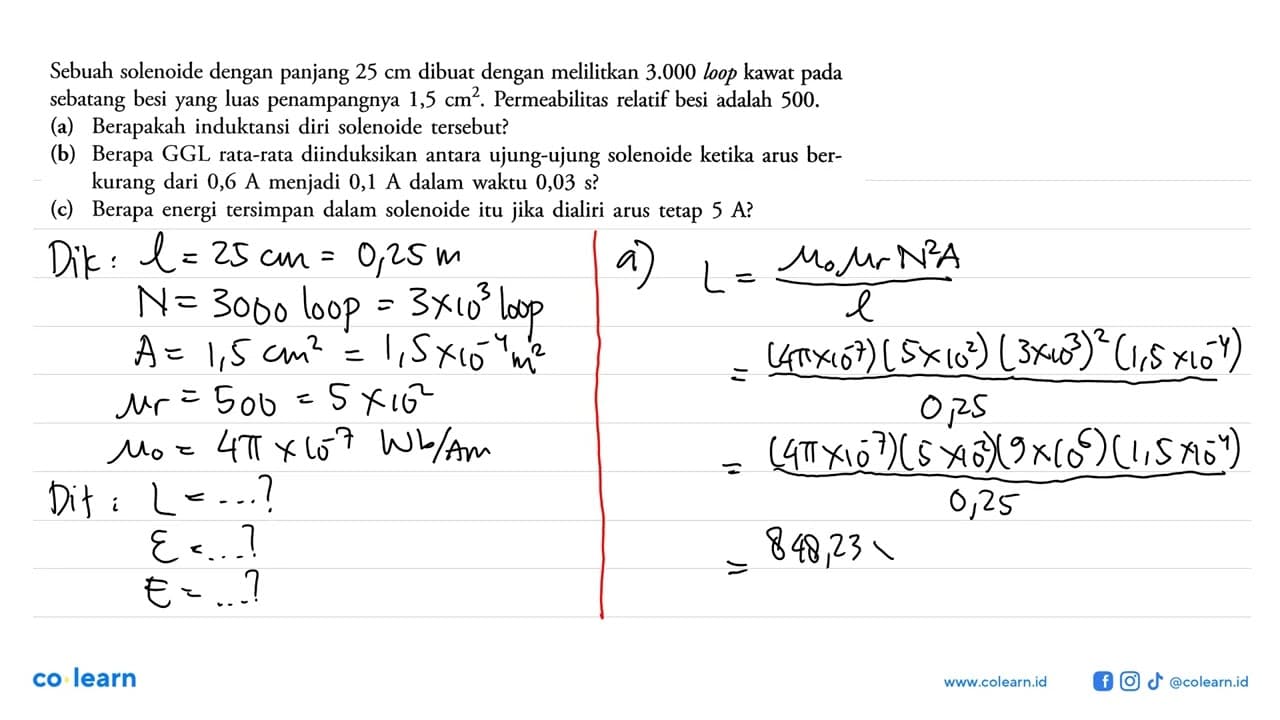 Sebuah solenoide dengan panjang 25 cm dibuat dengan melilitkan 3.000 loop kawat pada
sebatang besi yang luas penampangnya 1,5 cm². Permeabilitas relatif besi adalah 500.
(a) Berapakah induktansi diri solenoide tersebut?
(b) Berapa GGL rata-rata diinduksikan antara ujung-ujung solenoide ketika arus ber-
kurang dari 0,6 A menjadi 0,1 A dalam waktu 0,03 s?
(c) Berapa energi tersimpan dalam solenoide itu jika dialiri arus tetap 5 A?
Dik: l = 25 cm = 0,25 m
N = 3000 loop = 3×10³ loop
A = 1,5 cm² = 1,5×10⁻⁴ m²
μr = 500 = 5×10²
μ₀ = 4π×10⁻⁷ Wb/Am
Dit: L = ...?
ε = ...?
E = ...?
a) L = μ₀ μr N²A
l
= (4π×10⁻⁷)(5×10²)(3×10³)²(1,5×10⁻⁴)
0,25
= (4π×10⁻⁷)(5×10²)(9×10⁶)(1,5×10⁻⁴)
0,25
= 848,23
co·learn
www.colearn.id
@colearn.id